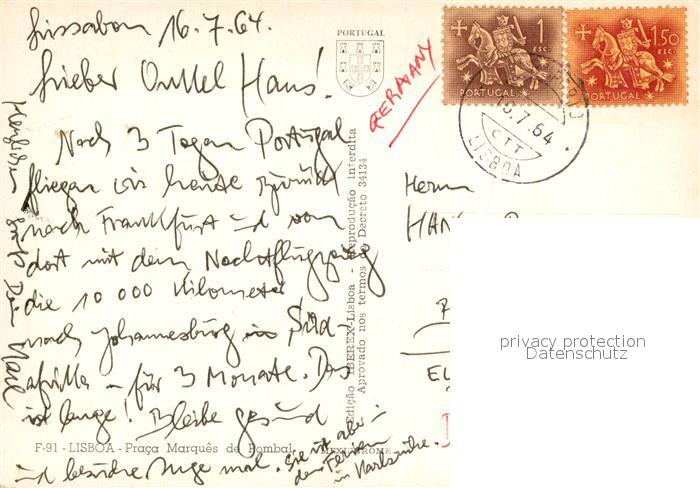 Lissabon 16.7.64.
Lieber Onkel Hans!
Nach 3 Tagen Portugal
fliegen wir heute zurück
nach Frankfurt und von
dort mit dem Nachtflugzeug
die 10 000 Kilometer
nach Johannesburg in Süd-
afrika – für 3 Monate. Das
ist lange! Bleibe gesund
und besuche Inge mal. Sie ist aber
den Ferien
in Karlsruhe.
Herzlichen Gruß Dein Karl
F-91 - LISBOA - Praça Marquês de Pombal
MEXICHROME
PORTUGAL
Edição IBEREX-Lisboa - Reprodução Interdita
Aprovado nos termos do Decreto 34134
GERMANY
1
ESC.
PORTUGAL
1,50
ESC.
PORTUGAL
7.64
CTT
LISBOA
Herrn
HAN
EL
privacy protection
Datenschutz